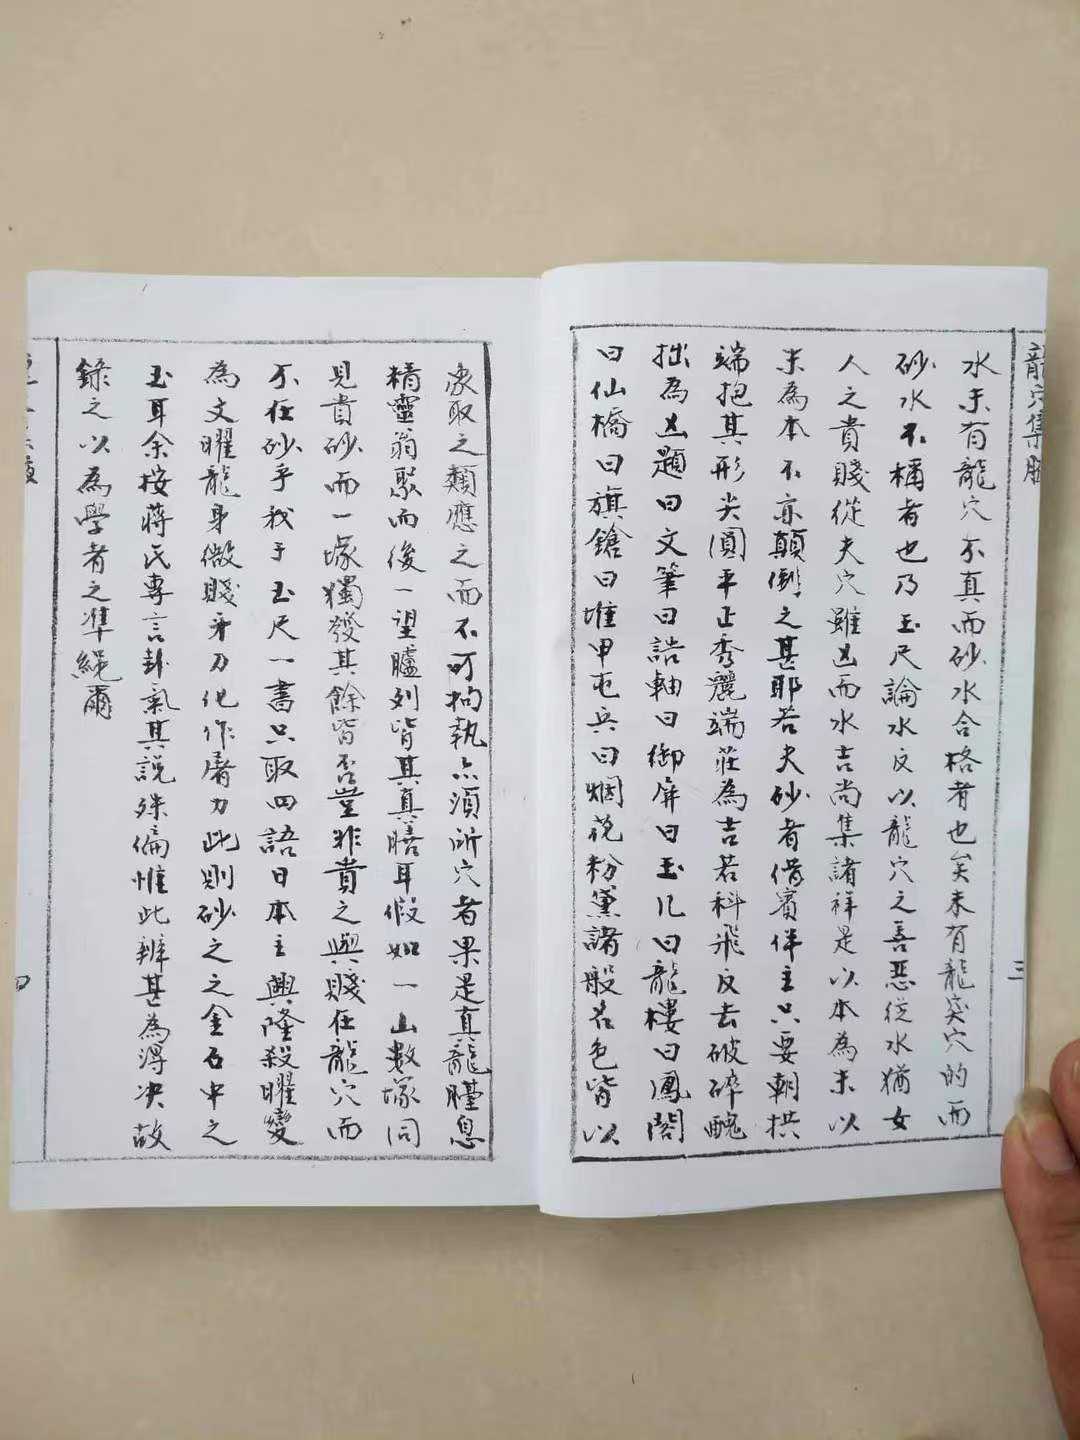 龍穴集
三
水未有龍穴不真而砂水合格者也矣未有龍突穴的而
砂水不稱者也乃玉尺論水反以龍穴之善惡從水猶女
人之貴賤從夫穴雖凶而水吉尚集諸祥是以本為末以
末為本不亦顛倒之甚耶若夫砂者借賓伴主只要朝拱
端抱其形尖圓平正秀麗端莊為吉若科飛反去破碎醜
拙為凶題曰文筆曰誥軸曰御屏曰玉几曰龍樓曰鳳閣
曰仙橋曰旗鎗曰堆甲屯兵曰烟花粉黛諸般名色皆以
象取之類應之而不可拘執亦須所穴者果是真龍胎息
精靈翕聚而後一望臚列皆其真膳耳假如一山數塚同
見貴砂而一塚獨發其餘皆否豈非貴之與賤在龍穴而
不在砂乎我于玉尺一書只取四語曰本主興隆殺曜變
為文曜龍身微賤牙刀化作屠刀此則砂之之金石中之
玉耳余按蔣氏專言卦氣其說殊偏惟此辨甚為得決故
錄之以為學者之準繩爾